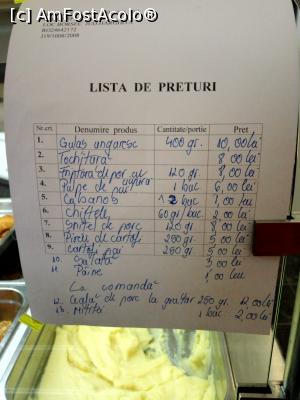 [c] AmFostAcolo®
LOC. BORSEC
RO24642172
J19/1008/2008
LISTA DE PRETURI
Nr.crt. Denumire produs Cantitate/portie Pret
1. Gulaș unguresc 400 gr. 10,00 lei
2. Tochitură 8,00 lei
3. de porc 120 gr. 8,00 lei
4. Pulpe de pui 1 buc 6,00 lei
5. Cabanos 1 buc
6. Chiftele 60 gr/buc 2,00 lei
7. Șnițel de porc 120 gr. 8,00 lei
8. Pireu de cartofi 250 gr. 5,00 lei
9. Cartofi pai 250 gr 5,00 lei
10. Salată 3,00 lei
11. Pâine 1,00 leu
La comandă
12. Ceafă de porc la grătar 250 gr. 12,00 lei
13. Mititei 1 buc 2,00 lei